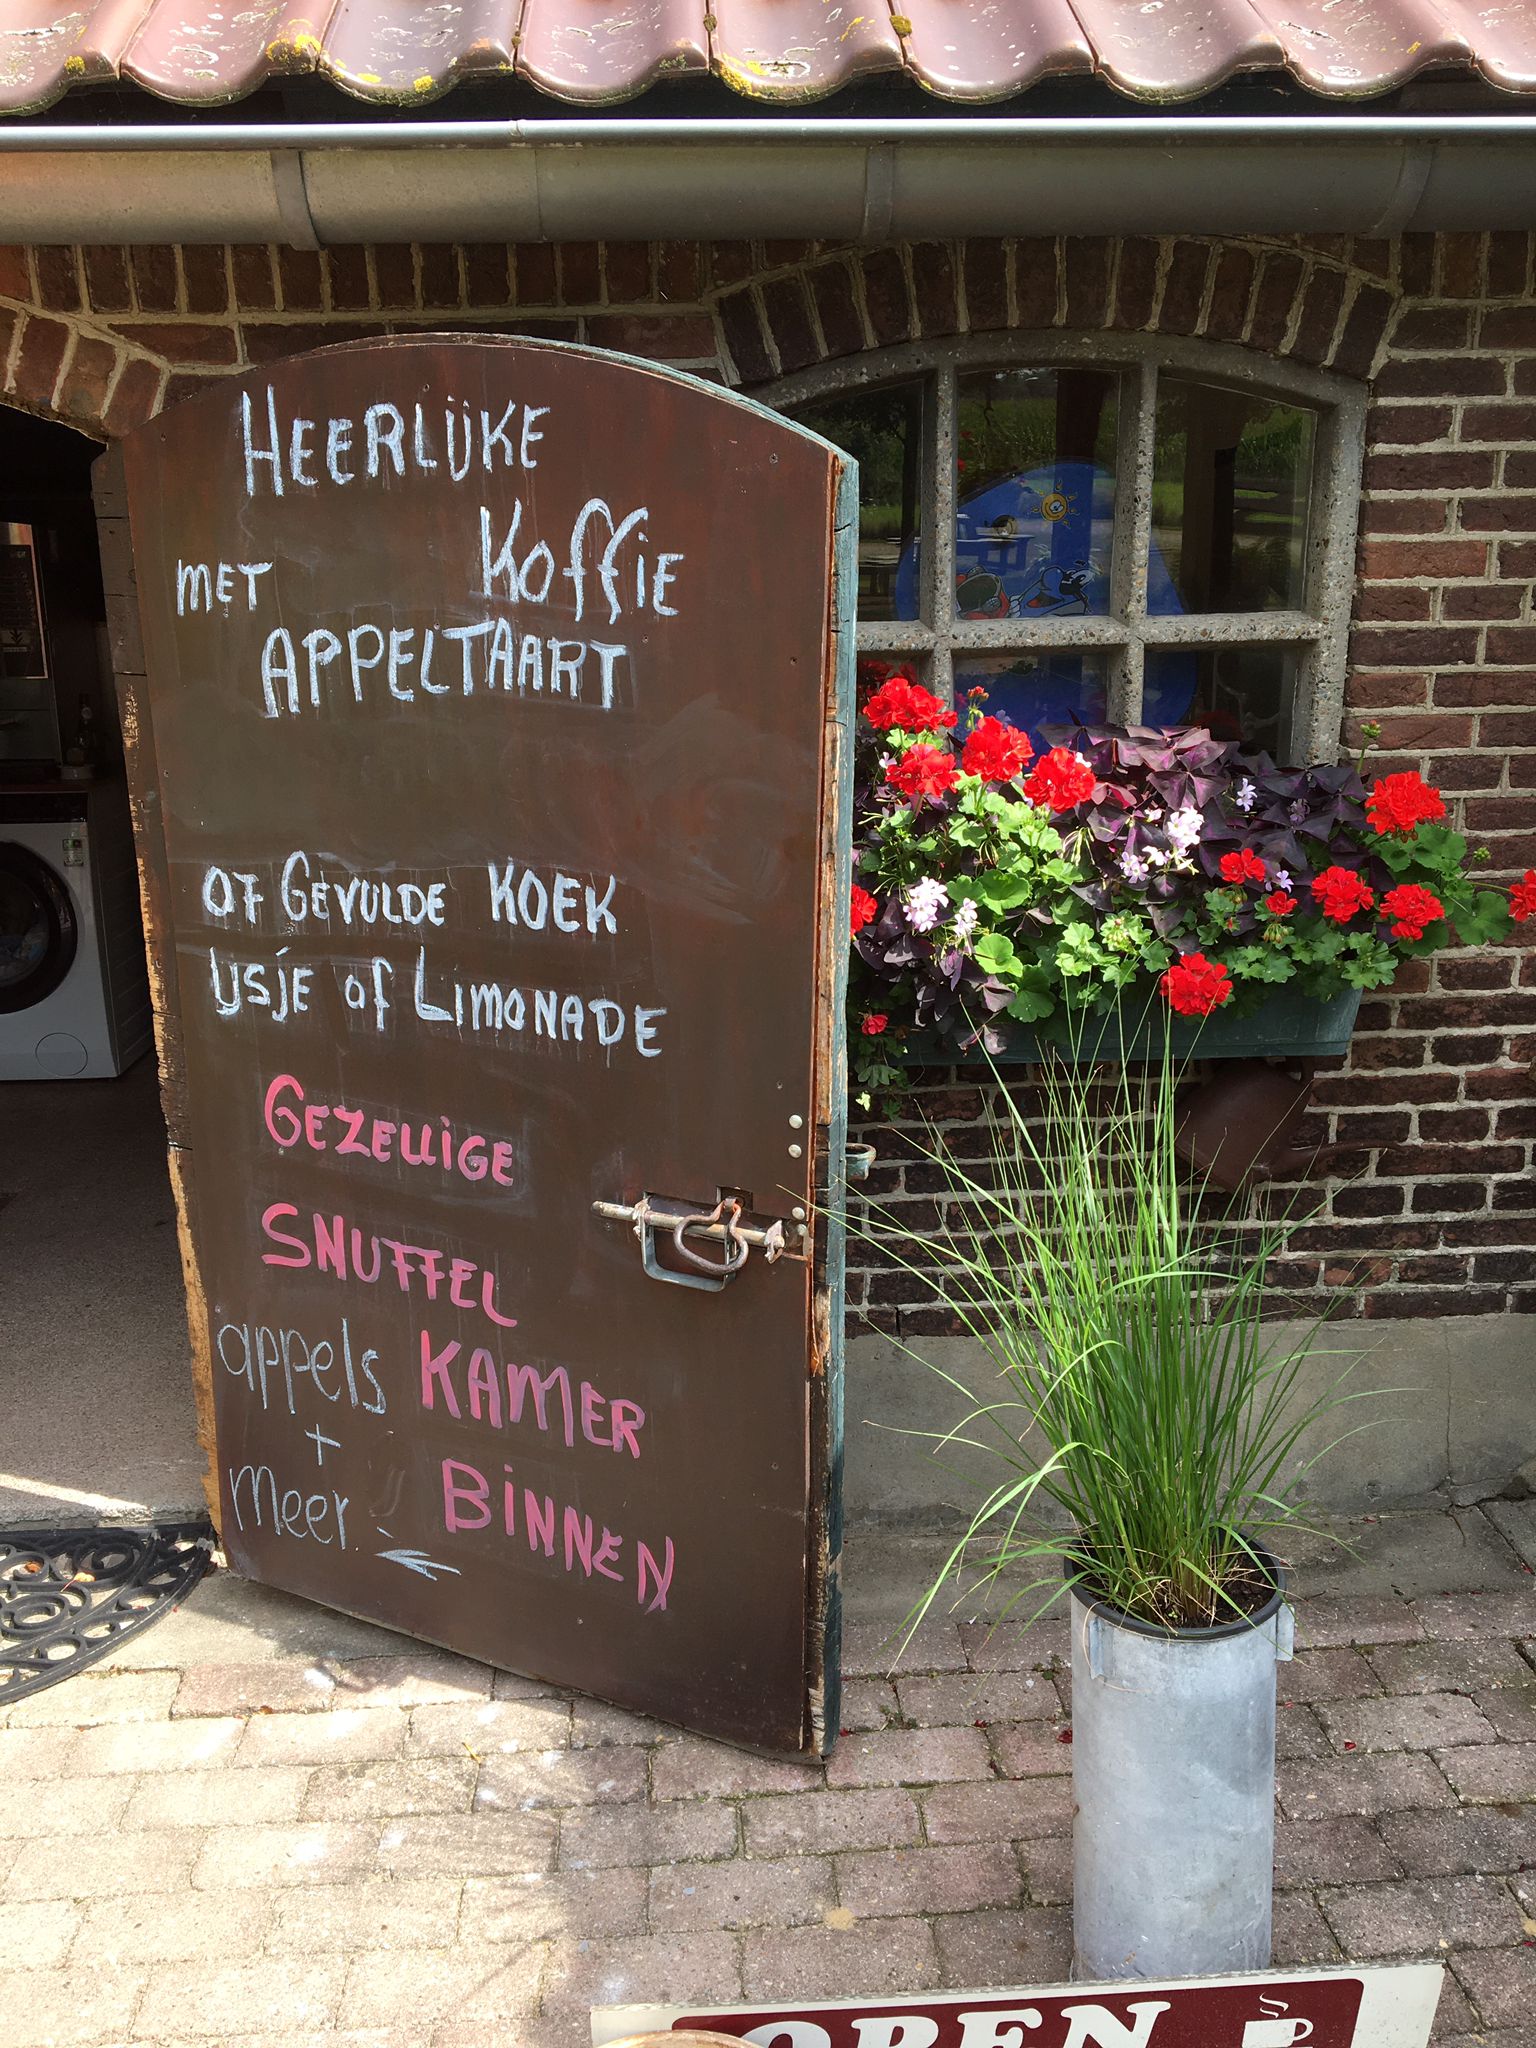 HEERLIJKE
KOFFIE
MET
APPELTAART
OF GEVULDE KOEK
IJSJE OF LIMONADE
GEZELLIGE
SNUFFEL
KAMER
BINNEN
appels
+
meer.
OPEN